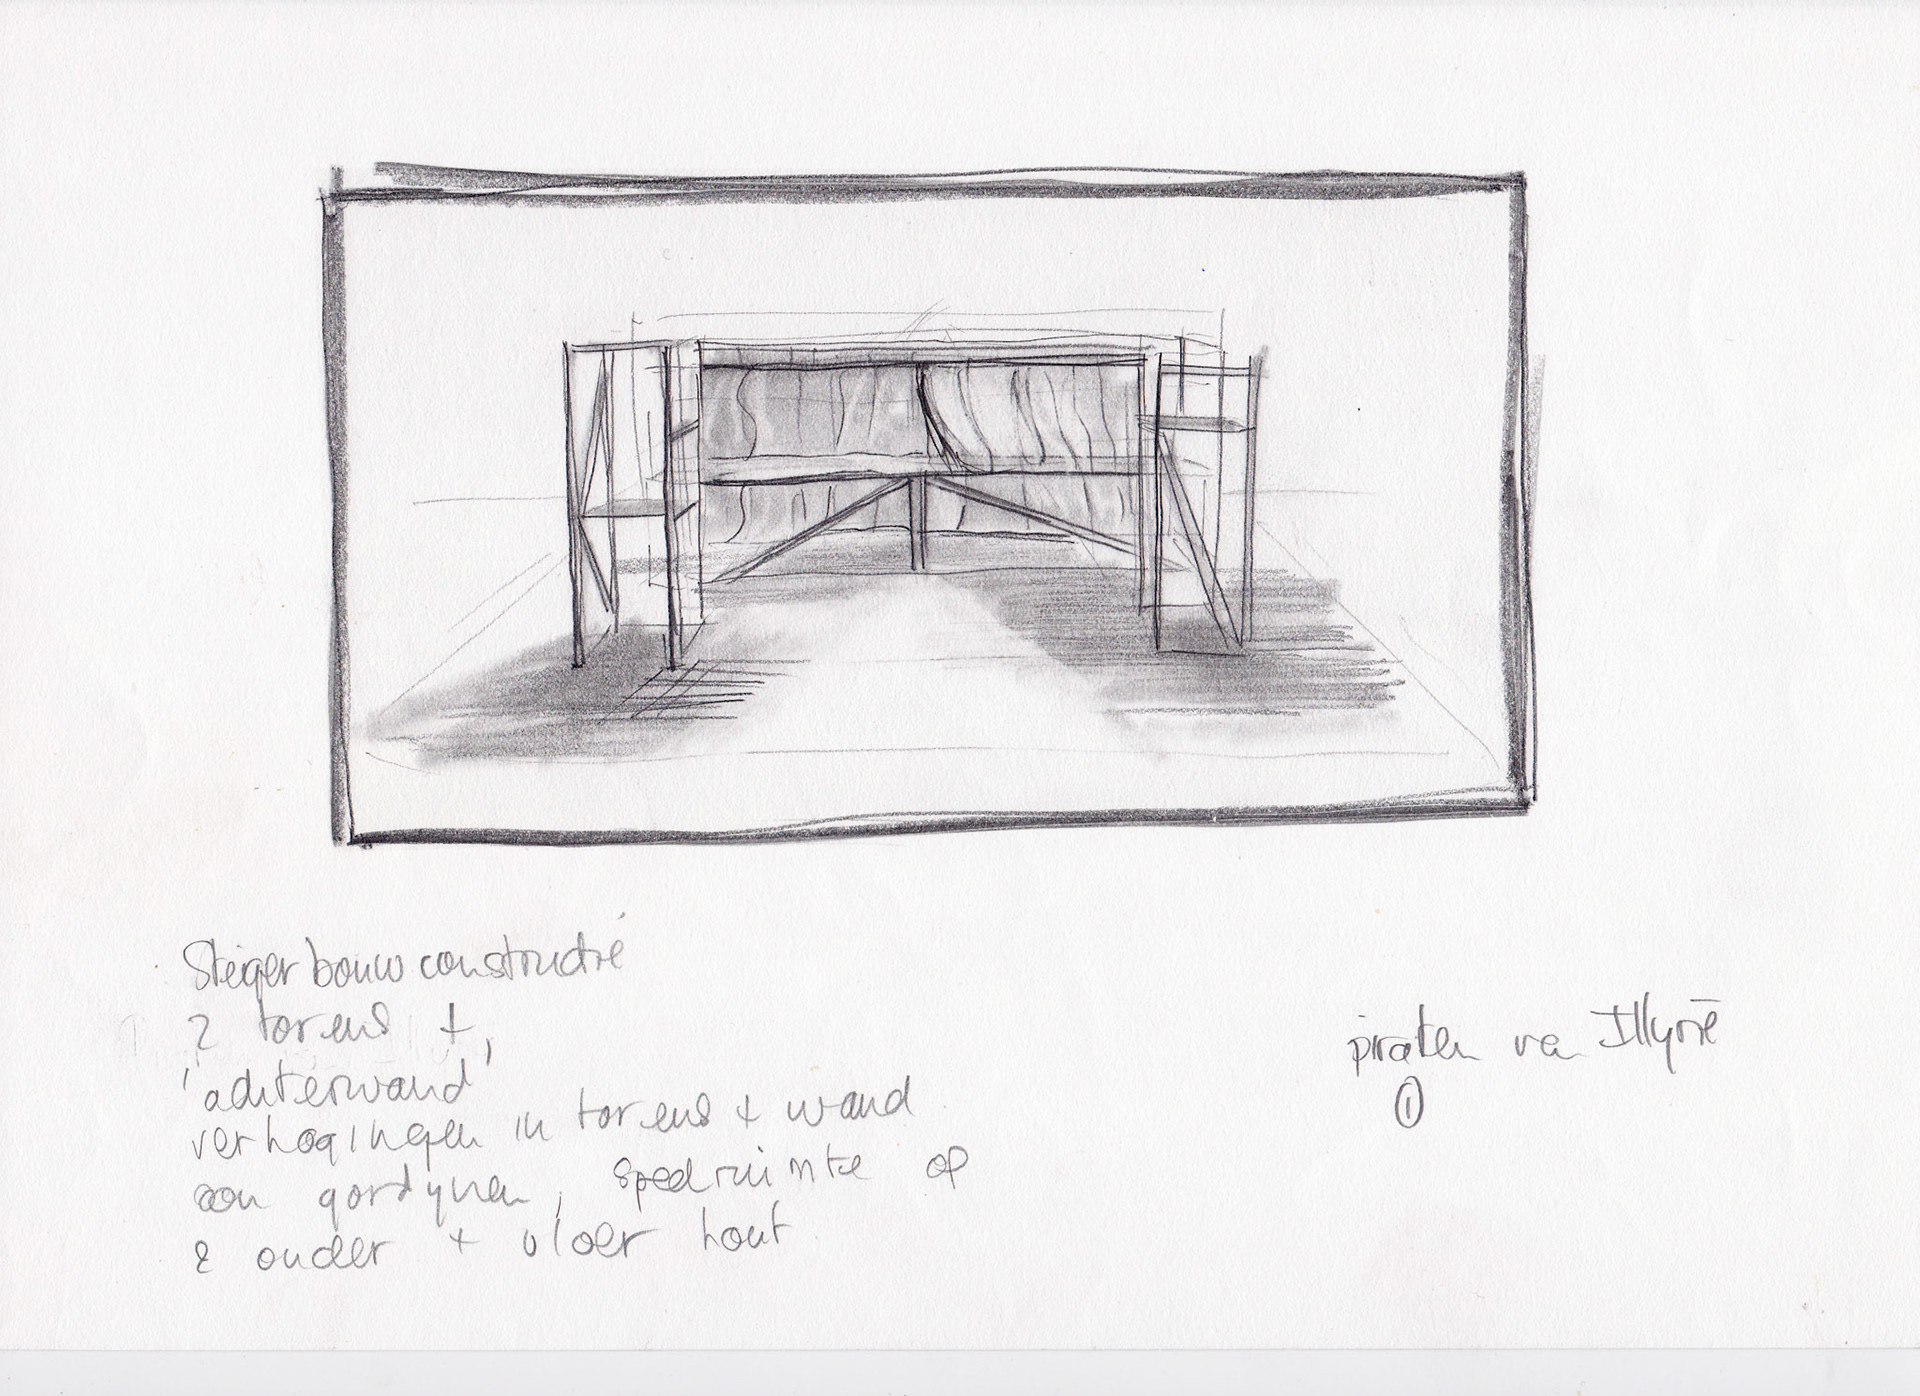 Steigerbouwconstructie
2 torens +
'achterwand'
verhogingen in torens + wand
aan gordynen, speelruimte op
& onder + vloer hout
piraten van Illyrië
1